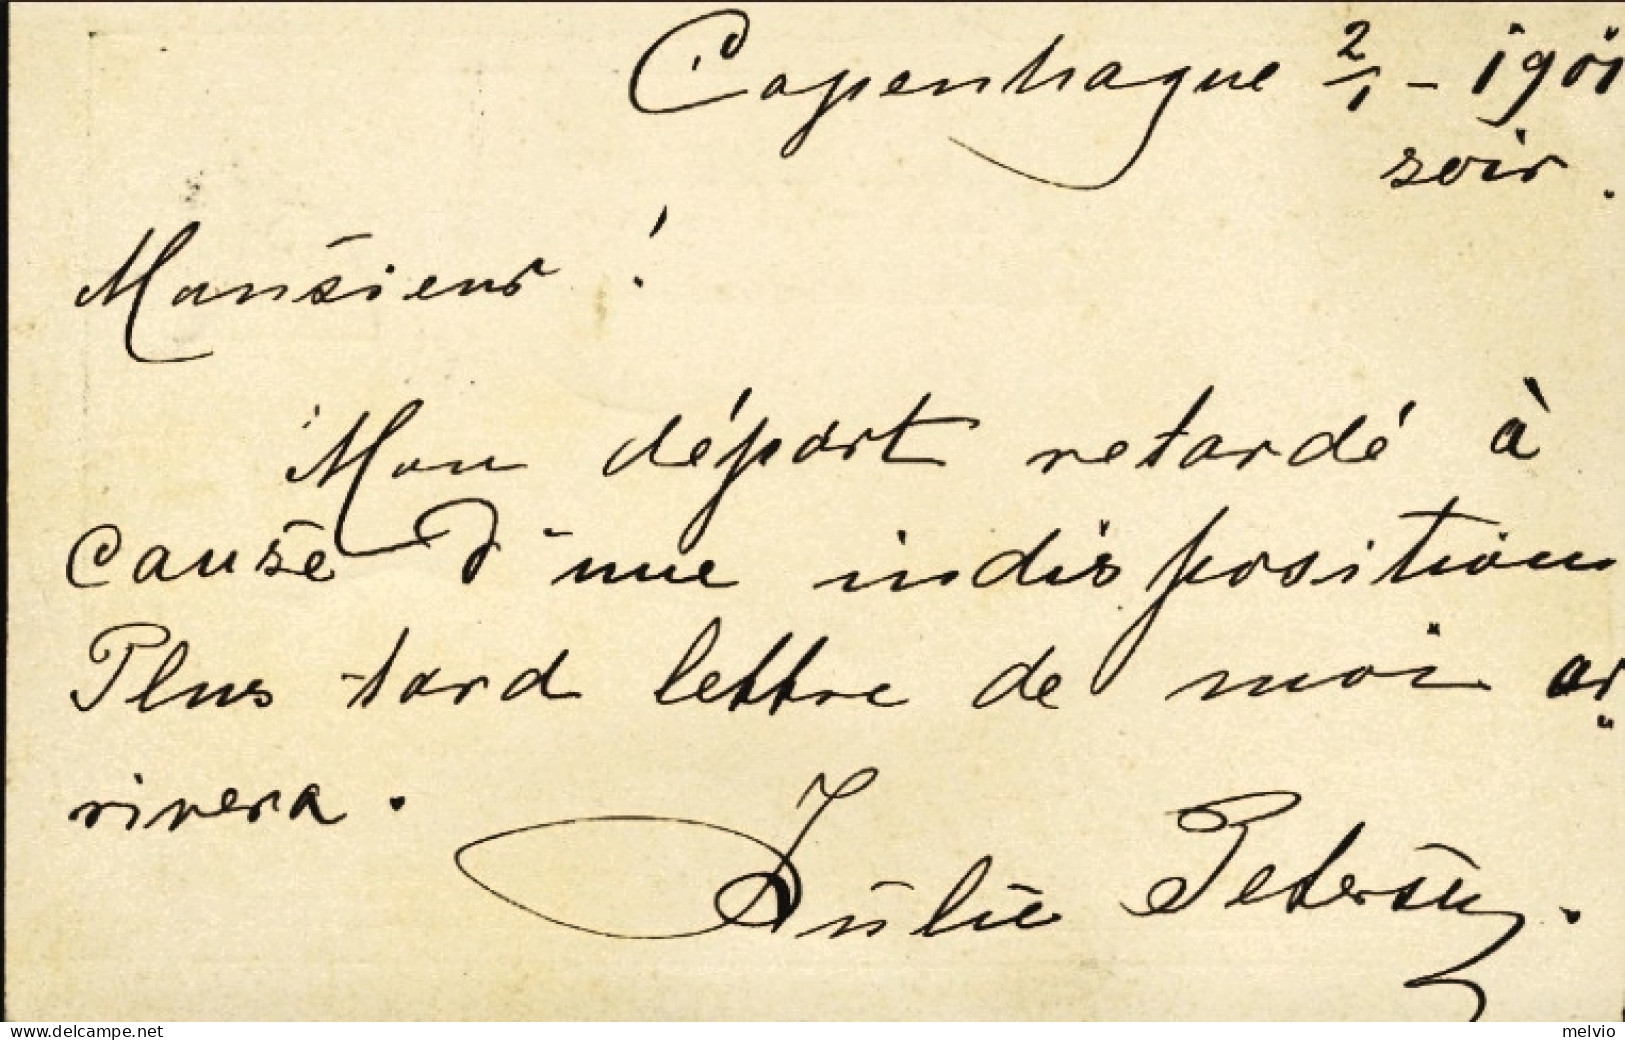 Copenhague 2/1 - 1901
soir.
Monsieur !
Mon départ retardé à
cause d'une indisposition
Plus tard lettre de moi ar
rivera.
Julie Petersen.
www.delcampe.net
melvio